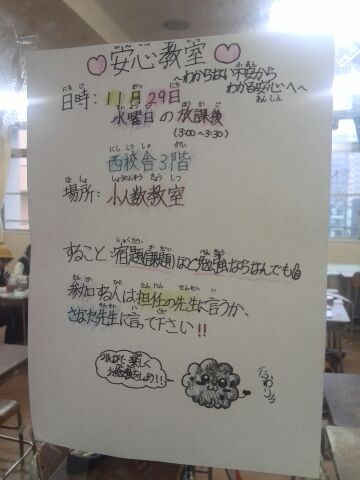 安心教室
～わからない不安から
わかる安心へ～
日時：11月29日
水曜日の放課後
(3:00～3:30)
西校舎3階
場所：少人数教室
すること：宿題(課題)など勉強ならなんでも
参加する人は担任の先生に言うか、
先生に言って下さい!!
みんなで楽しく
お勉強をしよう!!